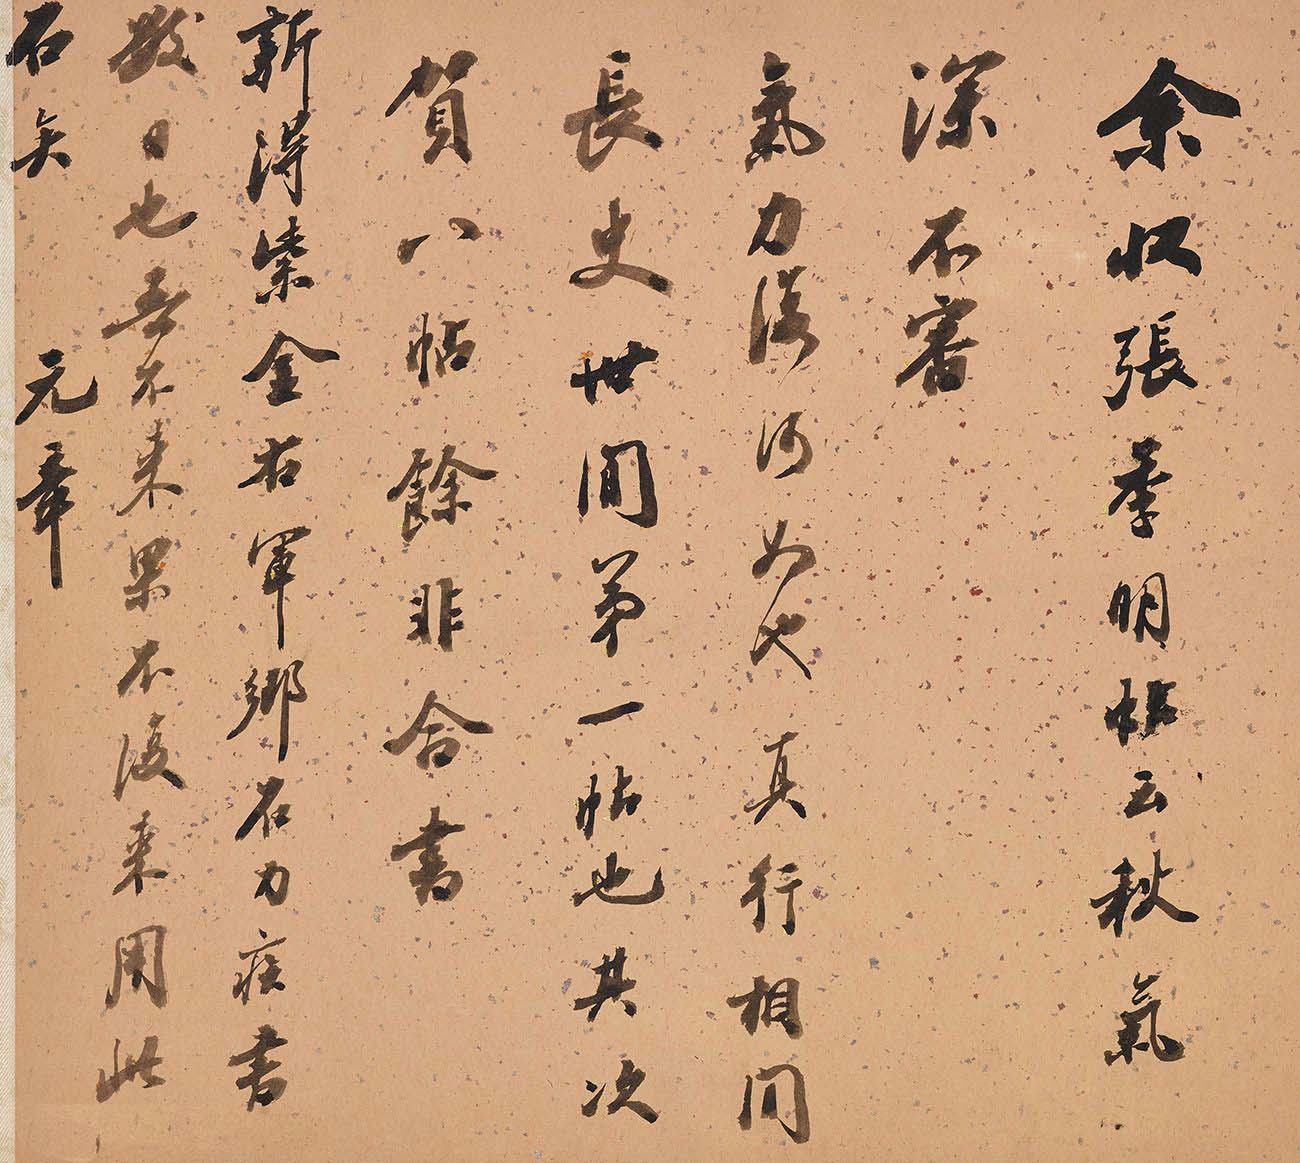 余收張季明帖云秋氣
深不審
氣力復何如也真行相間
長史世間第一帖也其次
賀八帖餘非合書
新得紫金右軍鄉石力疾書
數日也吾不來果不復來用此
石矣　元章